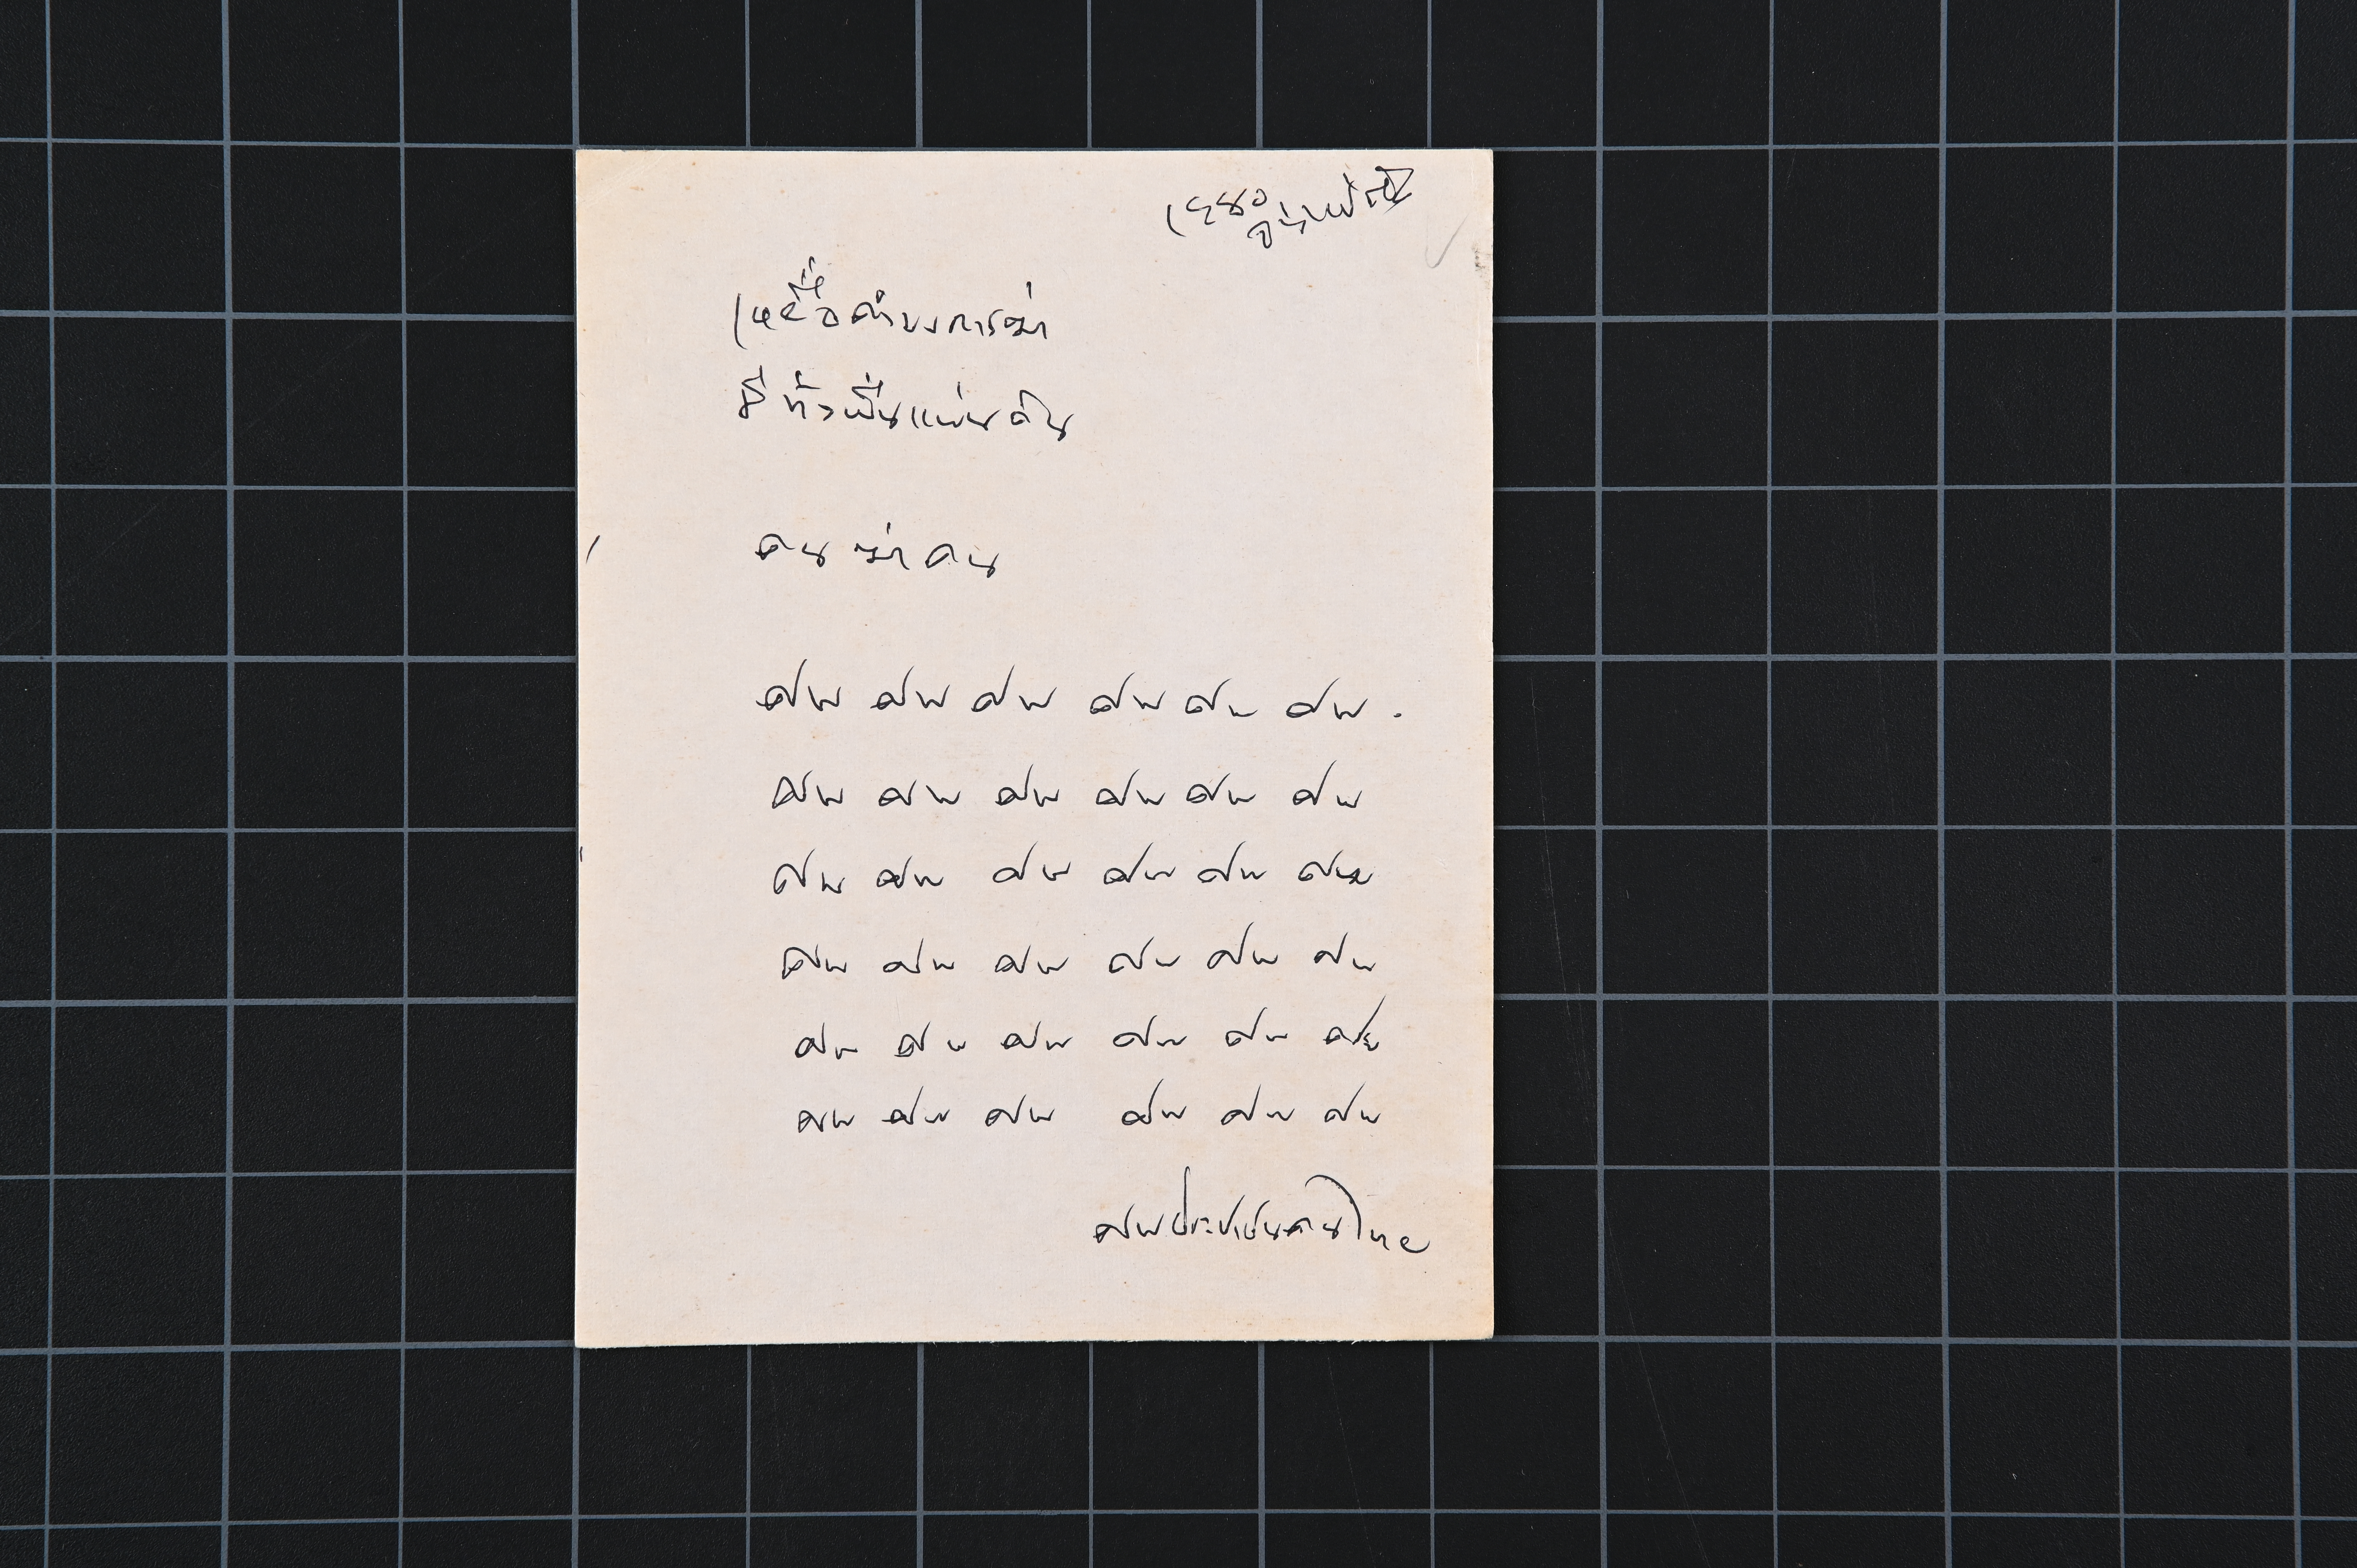 คำบงการฆ่า
มีทั่วผืนแผ่นดิน
คน ฆ่า คน
ศพ ศพ ศพ ศพ ศพ ศพ .
ศพ ศพ ศพ ศพ ศพ ศพ
ศพ ศพ ศพ ศพ ศพ ศพ
ศพ ศพ ศพ ศพ ศพ ศพ
ศพ ศพ ศพ ศพ ศพ ศพ
ศพ ศพ ศพ ศพ ศพ ศพ
ศพประชาชนคนไทย